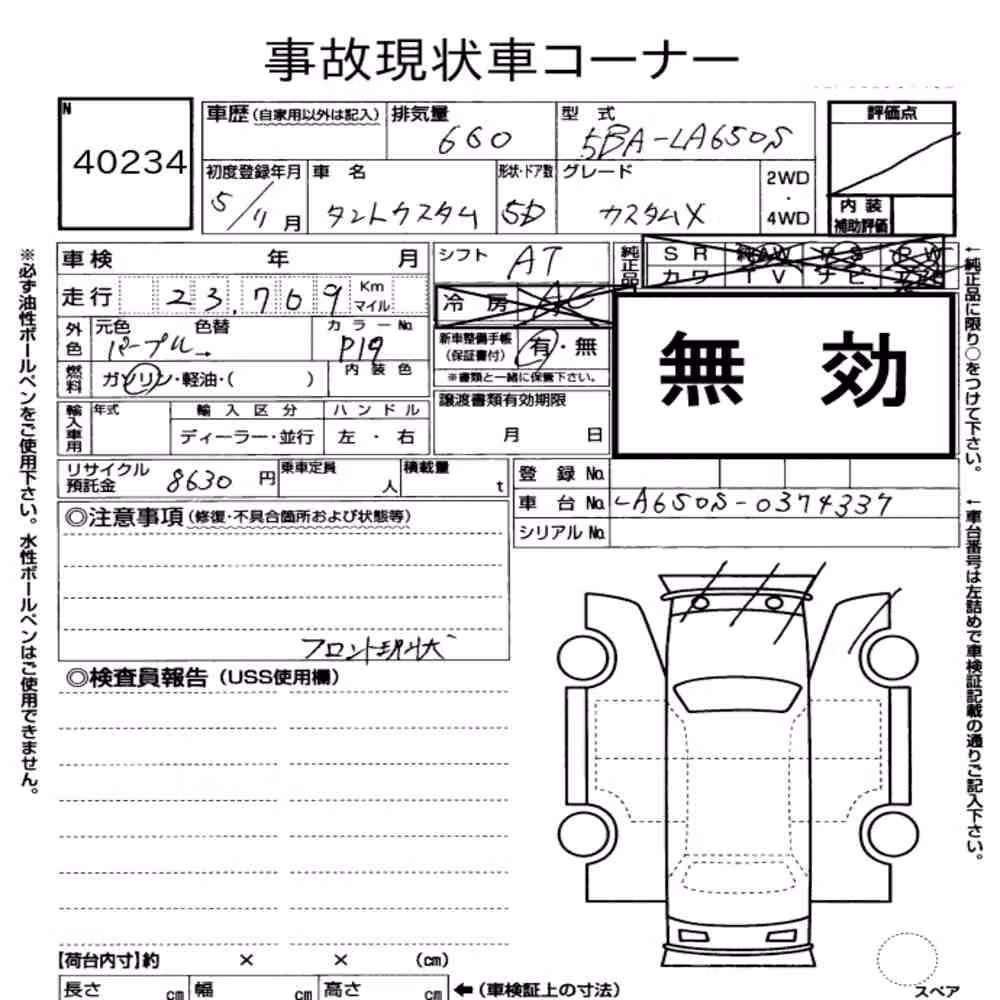 事故現状車コーナー
N
40234
車歴 (自家用以外は記入)
排気量
660
型 式
5BA-LA650S
評価点
初度登録年月
5/11月
車 名
タントカスタム
形状・ドア数
5D
グレード
カスタムX
2WD
・
4WD
内 装
補助評価
車検 年 月
シフト
AT
純正品
S R AW P S P W
カワ T V ナビ
走行 23,769 Km
マイル
冷 房
外色
元色 色替
パープル→
カラーNo.
P19
新車整備手帳
(保証書付)
有・無
※書類と一緒に保管下さい。
無 効
燃料
ガソリン・軽油・( )
内 装 色
輸入車用
年式
輸 入 区 分
ハ ン ド ル
ディーラー・並行
左 ・ 右
譲渡書類有効期限
月 日
リサイクル
預託金
8630 円
乗車定員
人
積載量
t
登 録 No.
車 台 No. LA650S-0374337
シリアル No.
◎注意事項 (修復・不具合箇所および状態等)
フロント現状
◎検査員報告 (USS使用欄)
【荷台内寸】約 × × (cm)
長さ cm 幅 cm 高さ cm
← (車検証上の寸法)
スペア
※必ず油性ボールペンをご使用下さい。水性ボールペンはご使用できません。
←純正品に限り○をつけて下さい。
←車台番号は左詰めで車検証記載の通りご記入下さい。